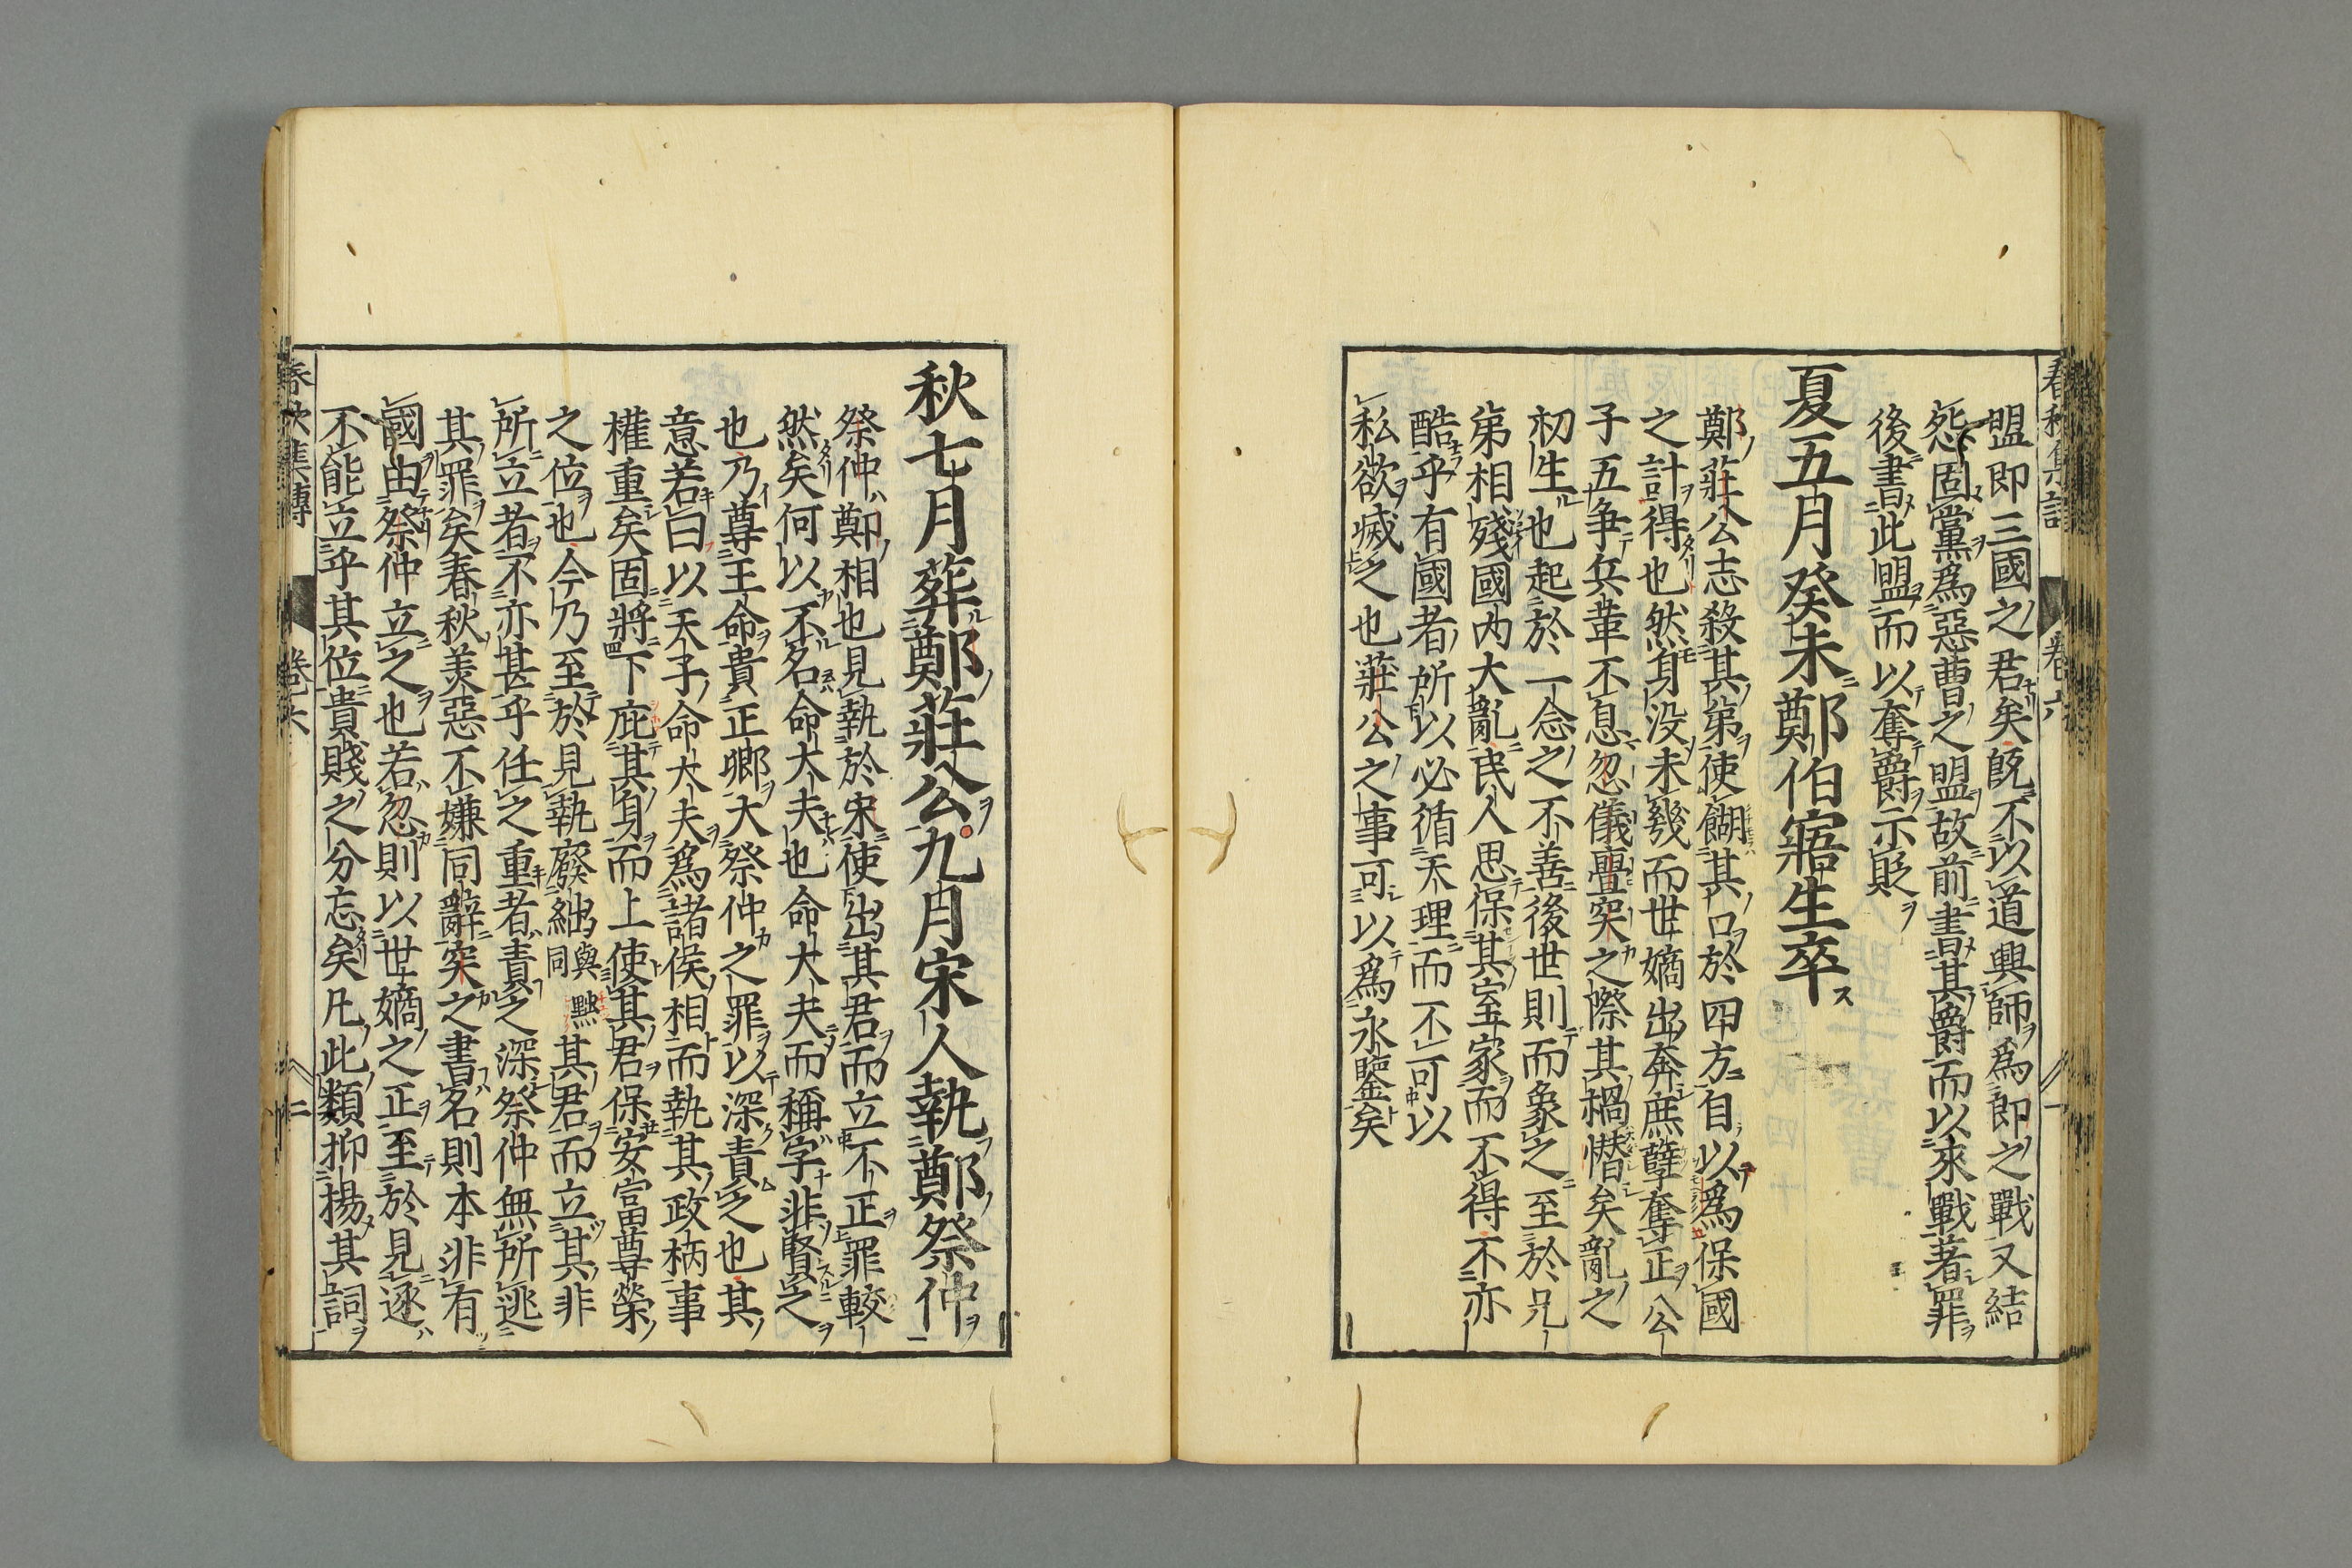 盟即三國之君矣旣不以道興師爲郎之戰又結
怨固黨爲惡曹之盟故前書其爵而以來戰著罪
後書此盟而以奪爵示貶
夏五月癸未鄭伯寤生卒
鄭莊公志殺其弟使餬其口於四方自以爲保國
之計得也然身没未幾而世嫡出奔庶孽奪正公
子五争兵革不息忽儀亹突之際其禍憯矣亂之
初生也起於一念之不善後世則而象之至於兄
弟相殘國内大亂民人思保其室家而不得不亦
酷乎有國者所以必循天理而不可以
私欲滅之也莊公之事可以爲永鑒矣
秋七月葬鄭莊公九月宋人執鄭祭仲
祭仲鄭相也見執於宋使出其君而立不正罪較
然矣何以不名命大夫也命大夫而稱字非賢之
也乃尊王命貴正卿大祭仲之罪以深責之也其
意若曰以天子命大夫爲諸侯相而執其政柄事
權重矣固將下庇其身而上使其君保安富尊榮
之位也今乃至於見執廢絀與黜同其君而立其非
所立者不亦甚乎任之重者責之深祭仲無所逃
其罪矣春秋美惡不嫌同辭突之書名則本非有
國由祭仲立之也若忽則以世嫡之正至於見逐
不能立乎其位貴賤之分忘矣凡此類抑揚其詞
春秋集傳 卷六 二